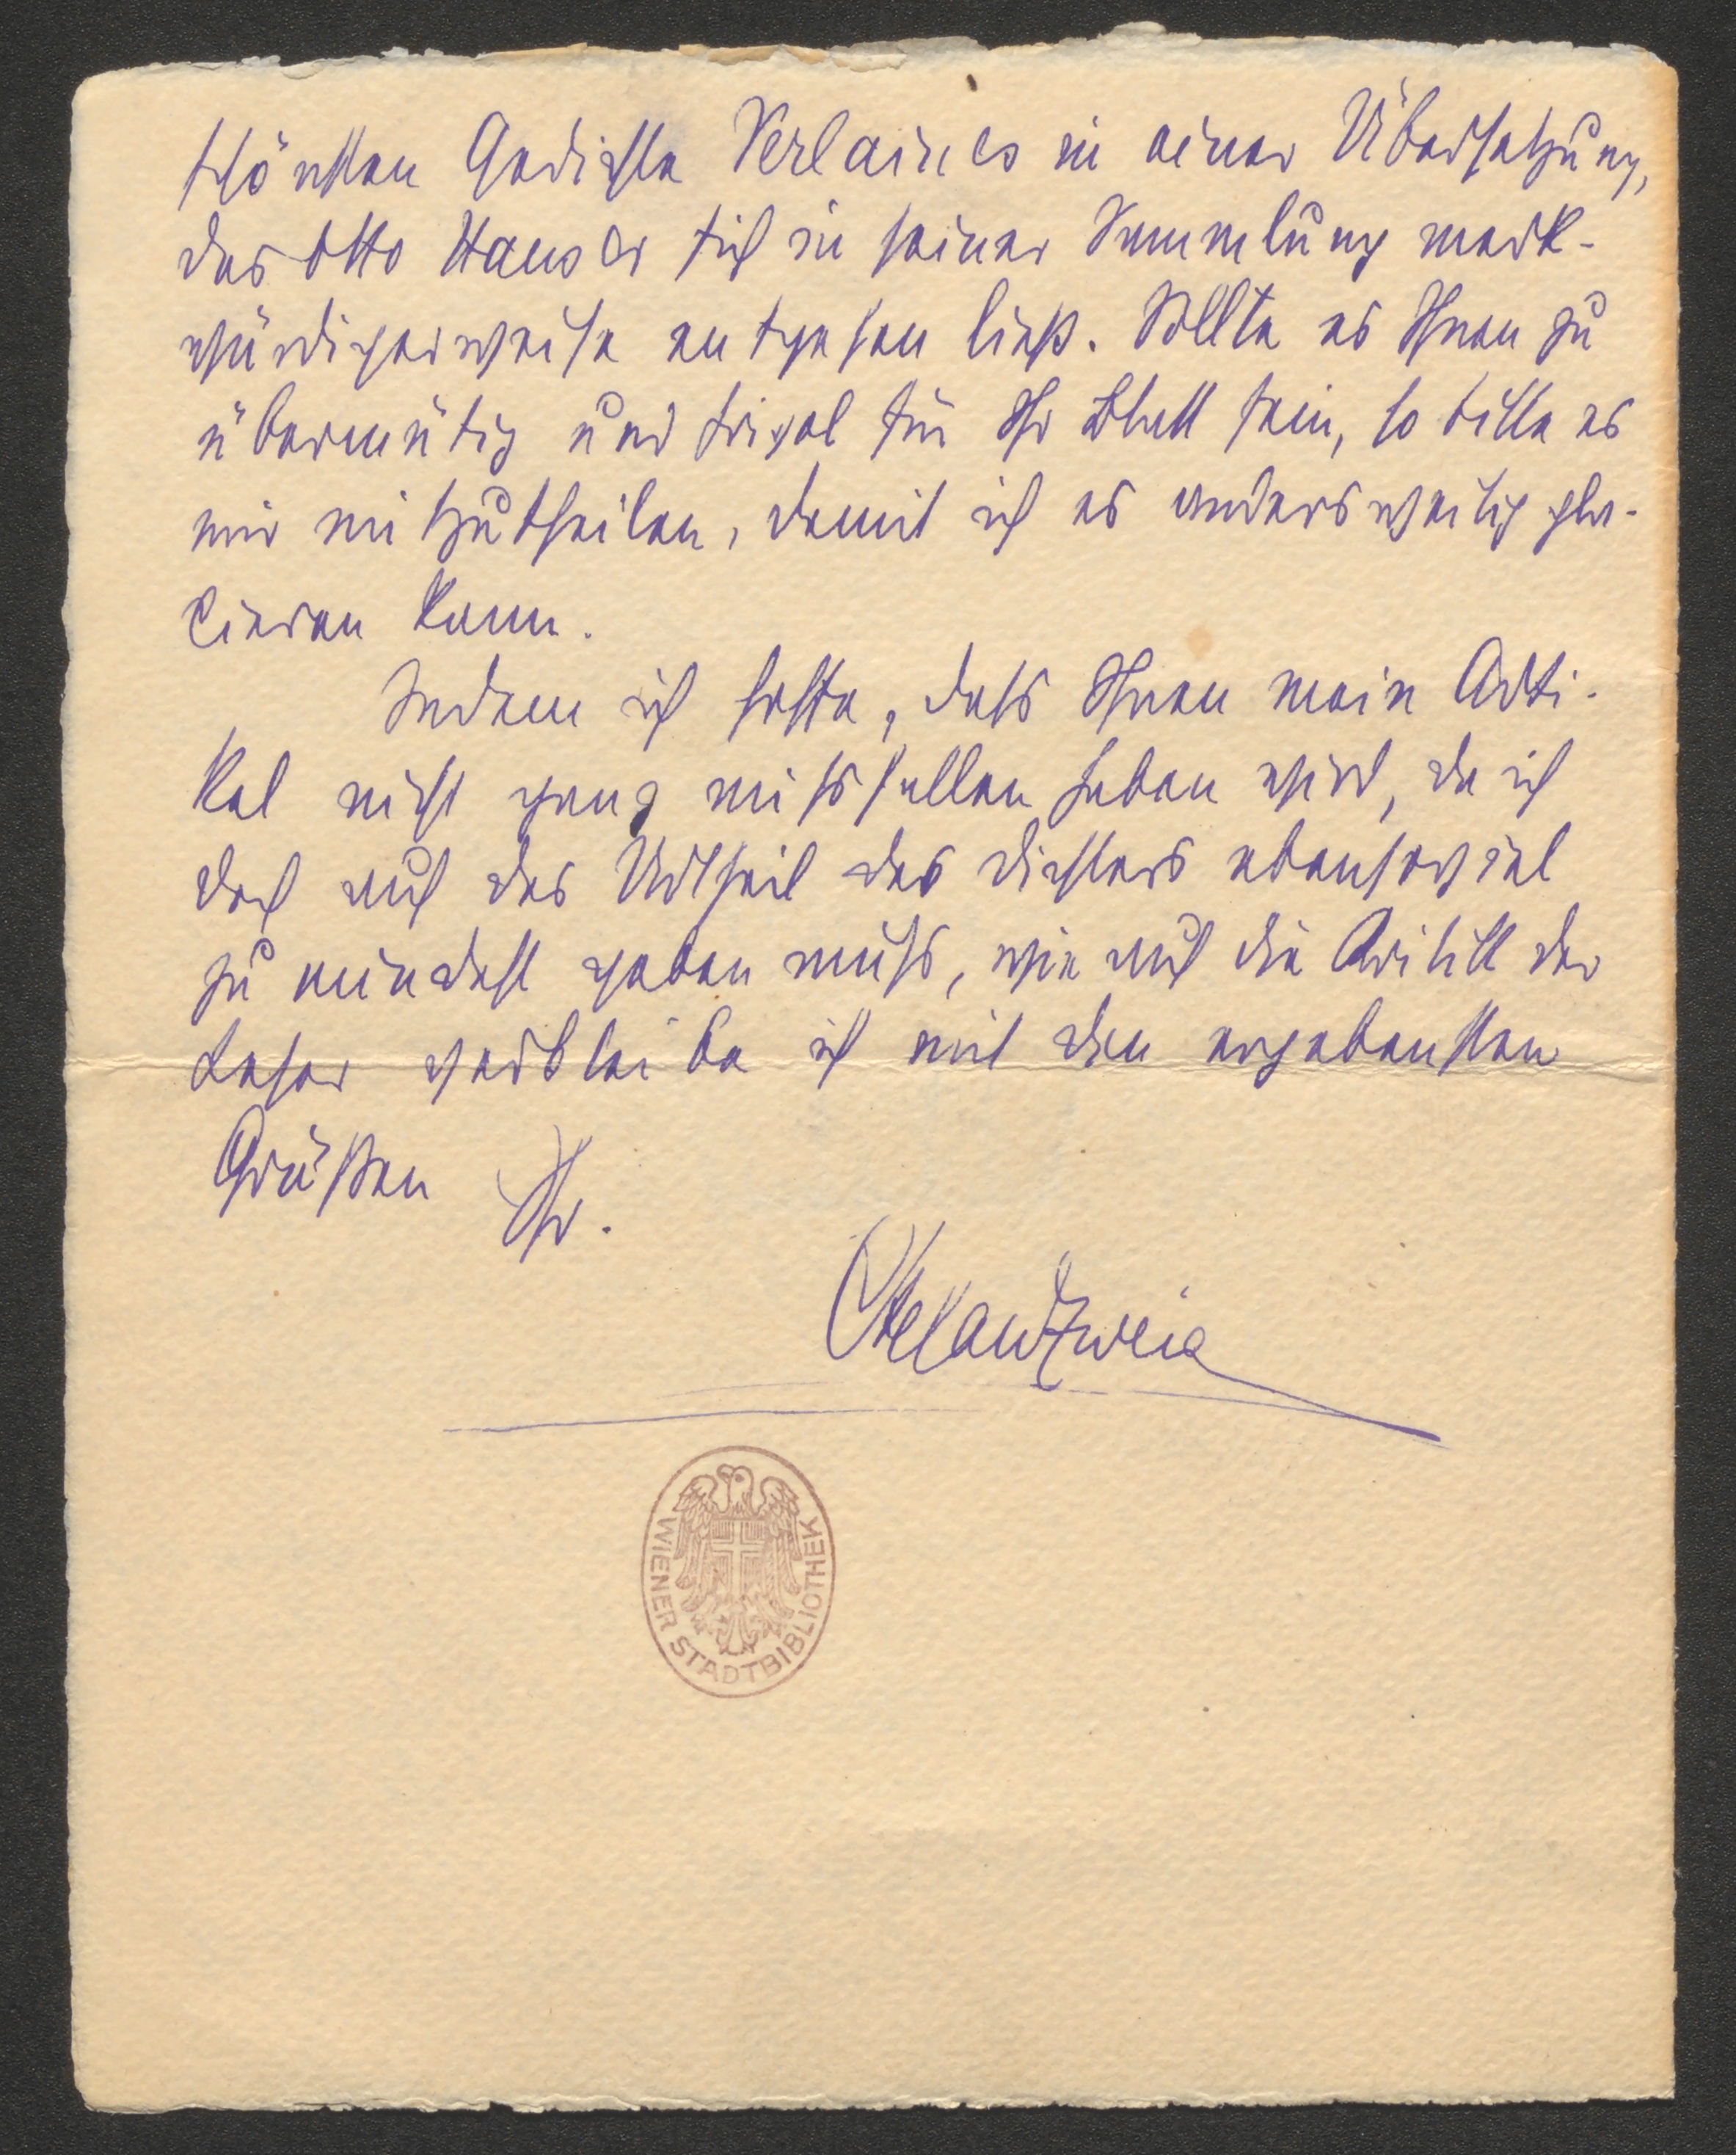 schönsten Gedichte Verlaines in einer Übersetzung,
das Otto Hauser sich in seiner Sammlung merk-
würdigerweise entgehen ließ. Sollte es Ihnen zu
übermütig und frivol für Ihr Blatt sein, so bitte es
mir mitzutheilen, damit ich es andersweitig pla-
cieren kann.
Indem ich hoffe, dass Ihnen mein Arti-
kel nicht ganz missfallen haben wird, da ich
doch auf das Urtheil des Dichters ebensoviel
zu mindest geben muss, wie auf die Kritik der
Leser verbleibe ich mit den ergebensten
Grüßen Ihr.
Stefan Zweig
WIENER STADTBIBLIOTHEK